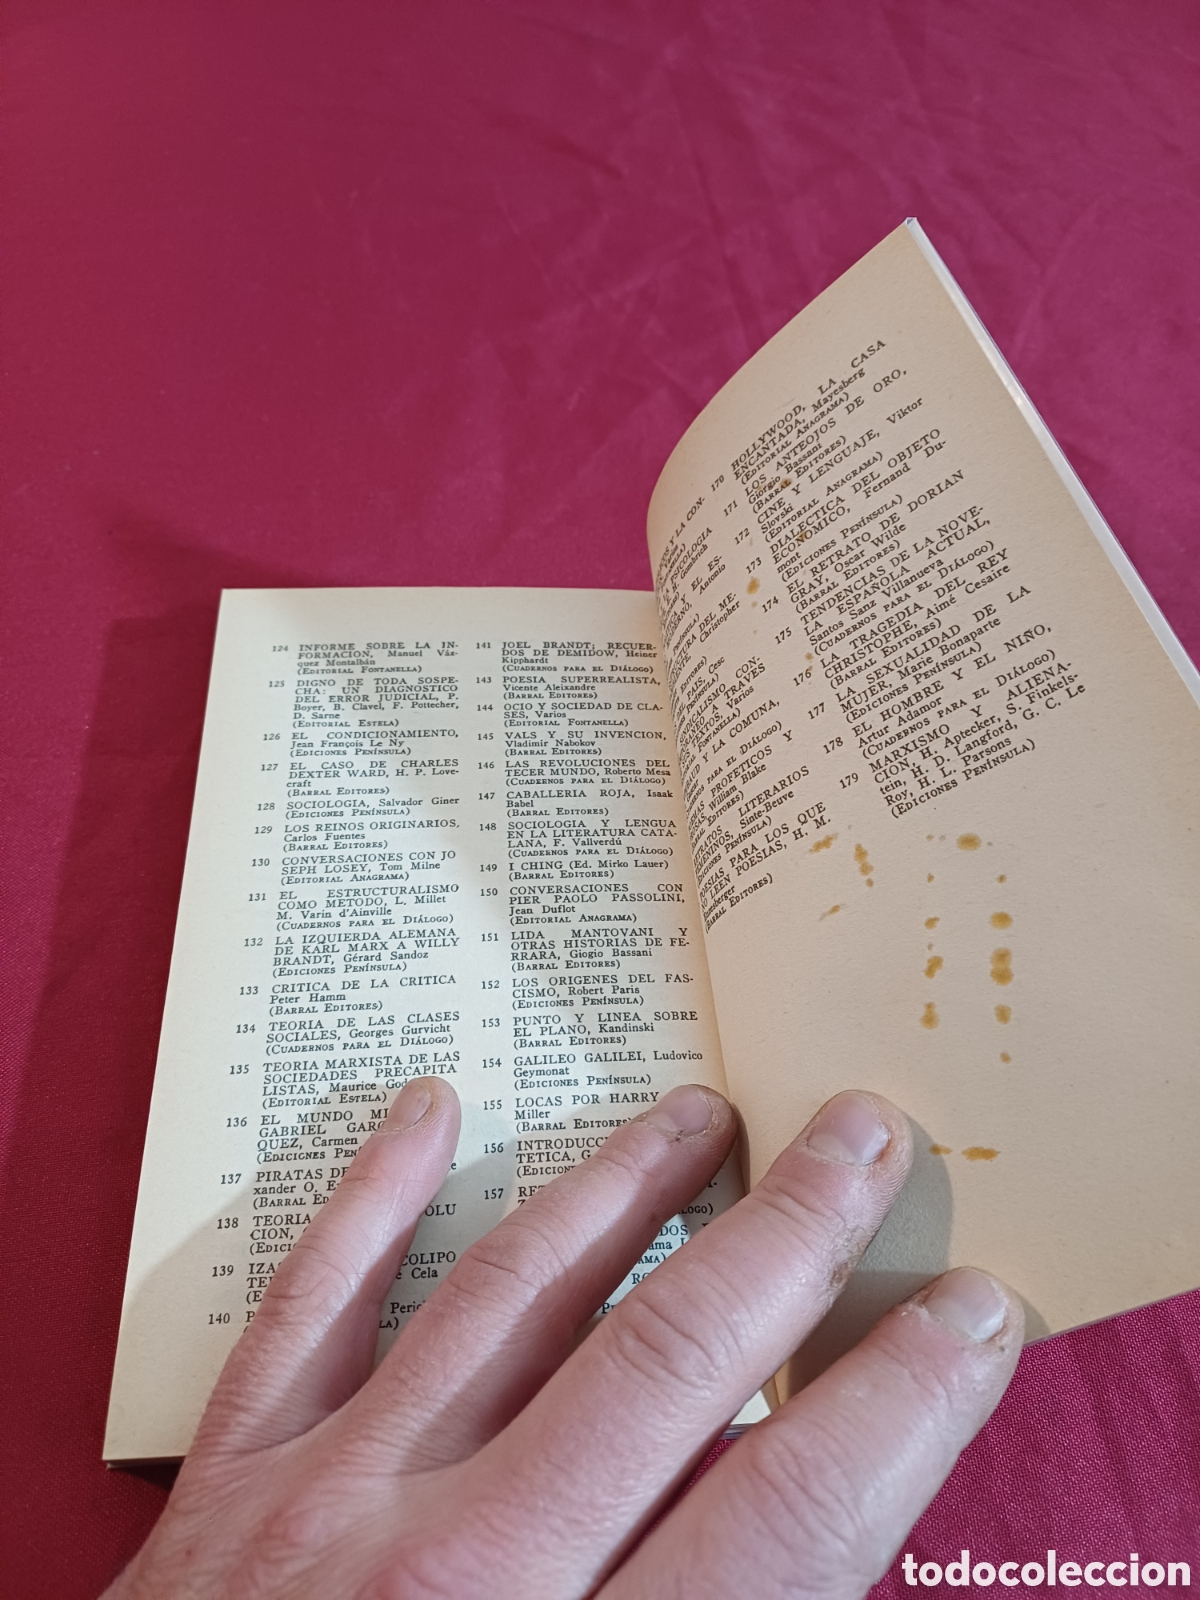 124 INFORME SOBRE LA IN-
FORMACION, Manuel Váz-
quez Montalbán
(EDITORIAL FONTANELLA)
125 DIGNO DE TODA SOSPE-
CHA: UN DIAGNOSTICO
DEL ERROR JUDICIAL, P.
Boyer, B. Clavel, F. Pottecher,
D. Sarne
(EDITORIAL ESTELA)
126 EL CONDICIONAMIENTO,
Jean François Le Ny
(EDICIONES PENÍNSULA)
127 EL CASO DE CHARLES
DEXTER WARD, H. P. Love-
craft
(BARRAL EDITORES)
128 SOCIOLOGIA, Salvador Giner
(EDICIONES PENÍNSULA)
129 LOS REINOS ORIGINARIOS,
Carlos Fuentes
(BARRAL EDITORES)
130 CONVERSACIONES CON JO
SEPH LOSEY, Tom Milne
(EDITORIAL ANAGRAMA)
131 EL ESTRUCTURALISMO
COMO METODO, L. Millet
M. Varin d'Ainville
(CUADERNOS PARA EL DIÁLOGO)
132 LA IZQUIERDA ALEMANA
DE KARL MARX A WILLY
BRANDT, Gérard Sandoz
(EDICIONES PENÍNSULA)
133 CRITICA DE LA CRITICA
Peter Hamm
(BARRAL EDITORES)
134 TEORIA DE LAS CLASES
SOCIALES, Georges Gurvicht
(CUADERNOS PARA EL DIÁLOGO)
135 TEORIA MARXISTA DE LAS
SOCIEDADES PRECAPITA
LISTAS, Maurice God
(EDITORIAL ESTELA)
136 EL MUNDO MI
GABRIEL GARC
QUEZ, Carmen
(EDICIONES PEN
137 PIRATAS DE
xander O. E
(BARRAL ED
138 TEORIA OLU
CION,
(EDICI
139 IZAS COLIPO
TE e Cela
(E
140 P Peric
LA)
141 JOEL BRANDT; RECUER-
DOS DE DEMIDOW, Heiner
Kipphardt
(CUADERNOS PARA EL DIÁLOGO)
143 POESIA SUPERREALISTA,
Vicente Aleixandre
(BARRAL EDITORES)
144 OCIO Y SOCIEDAD DE CLA-
SES, Varios
(EDITORIAL FONTANELLA)
145 VALS Y SU INVENCION,
Vladimir Nabokov
(BARRAL EDITORES)
146 LAS REVOLUCIONES DEL
TECER MUNDO, Roberto Mesa
(CUADERNOS PARA EL DIÁLOGO)
147 CABALLERIA ROJA, Isaak
Babel
(BARRAL EDITORES)
148 SOCIOLOGIA Y LENGUA
EN LA LITERATURA CATA-
LANA, F. Vallverdú
(CUADERNOS PARA EL DIÁLOGO)
149 I CHING (Ed. Mirko Lauer)
(BARRAL EDITORES)
150 CONVERSACIONES CON
PIER PAOLO PASSOLINI,
Jean Duflot
(EDITORIAL ANAGRAMA)
151 LIDA MANTOVANI Y
OTRAS HISTORIAS DE FE-
RRARA, Giogio Bassani
(BARRAL EDITORES)
152 LOS ORIGENES DEL FAS-
CISMO, Robert Paris
(EDICIONES PENÍNSULA)
153 PUNTO Y LINEA SOBRE
EL PLANO, Kandinski
(BARRAL EDITORES)
154 GALILEO GALILEI, Ludovico
Geymonat
(EDICIONES PENÍNSULA)
155 LOCAS POR HARRY
Miller
(BARRAL EDITORES)
156 INTRODUCCI
TETICA, G.
(EDICIONES PENÍNSULA)
157 RET
Z
LOGO)
DOS
ama
AMA)
RO
P
TOS Y LA CON-
PSICOLOGIA
Gombrich
Y EL ES-
Antonio
DEL ME-
Christopher
PAÍS, Cesc
SINDICALISMO CON-
A TRAVES
TEXTOS, Varios
Y LA COMUNA,
PARA EL DIÁLOGO)
PROFETICOS Y
William Blake
LITERARIOS
Sainte-Beuve
POESIAS PARA LOS QUE
NO LEEN POESIAS, H. M.
(BARRAL EDITORES)
170 HOLLYWOOD, LA CASA
ENCANTADA, Mayesberg
(EDITORIAL ANAGRAMA)
171 LOS ANTEOJOS DE ORO,
Giorgio Bassani
(BARRAL EDITORES)
172 CINE Y LENGUAJE, Viktor
Slovski
(EDITORIAL ANAGRAMA)
173 DIALECTICA DEL OBJETO
ECONOMICO, Fernand Du-
mont
(EDICIONES PENÍNSULA)
174 EL RETRATO DE DORIAN
GRAY, Oscar Wilde
(BARRAL EDITORES)
175 TENDENCIAS DE LA NOVE-
LA ESPAÑOLA ACTUAL,
Santos Sanz Villanueva
(CUADERNOS PARA EL DIÁLOGO)
176 LA TRAGEDIA DEL REY
CHRISTOPHE, Aimé Cesaire
(BARRAL EDITORES)
177 LA SEXUALIDAD DE LA
MUJER, Marie Bonaparte
(EDICIONES PENÍNSULA)
178 EL HOMBRE Y EL NIÑO,
Artur Adamor
(CUADERNOS PARA EL DIÁLOGO)
179 MARXISMO Y ALIENA-
CION, H. Aptecker, S. Finkels-
tein, H. D. Langford, G. C. Le
Roy, H. L. Parsons
(EDICIONES PENÍNSULA)
todocoleccion